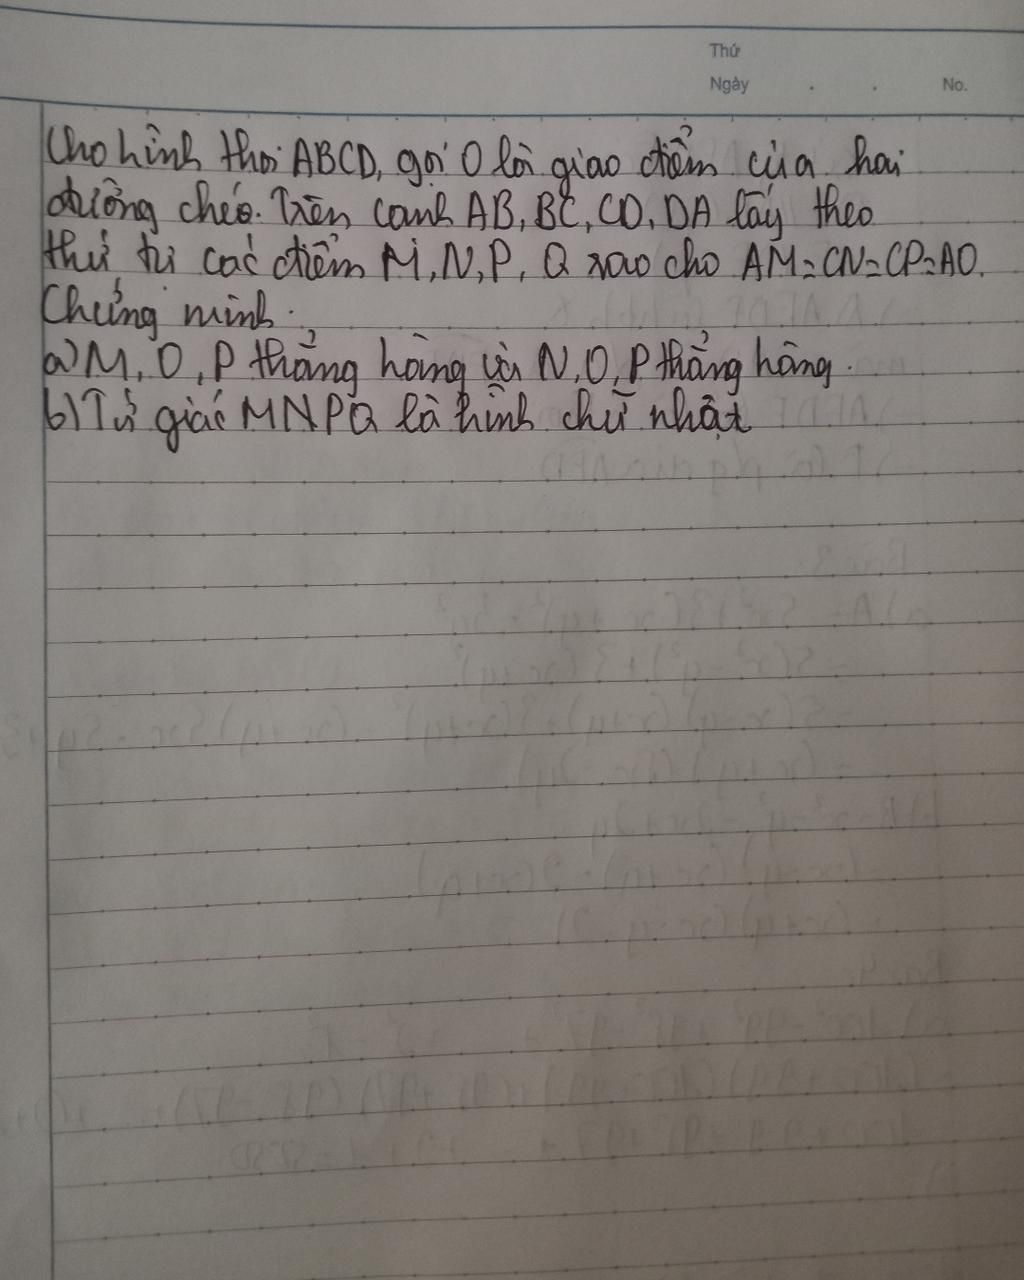 Thứ
Ngày . . No.
Cho hình thoi ABCD, gọi O là giao điểm của hai
đường chéo. Trên cạnh AB, BC, CD, DA lấy theo
thứ tự các điểm M, N, P, Q sao cho AM=CN=CP=AQ.
Chứng minh.
a) M, O, P thẳng hàng và N, O, P thẳng hàng.
b) Tứ giác MNPQ là hình chữ nhật